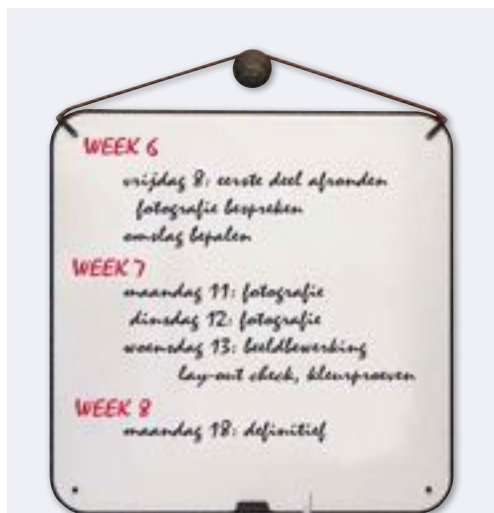 WEEK 6
vrijdag 8: eerste deel afronden
fotografie bespreken
omslag bepalen
WEEK 7
maandag 11: fotografie
dinsdag 12: fotografie
woensdag 13: beeldbewerking
lay-out check, kleurproeven
WEEK 8
maandag 18: definitief